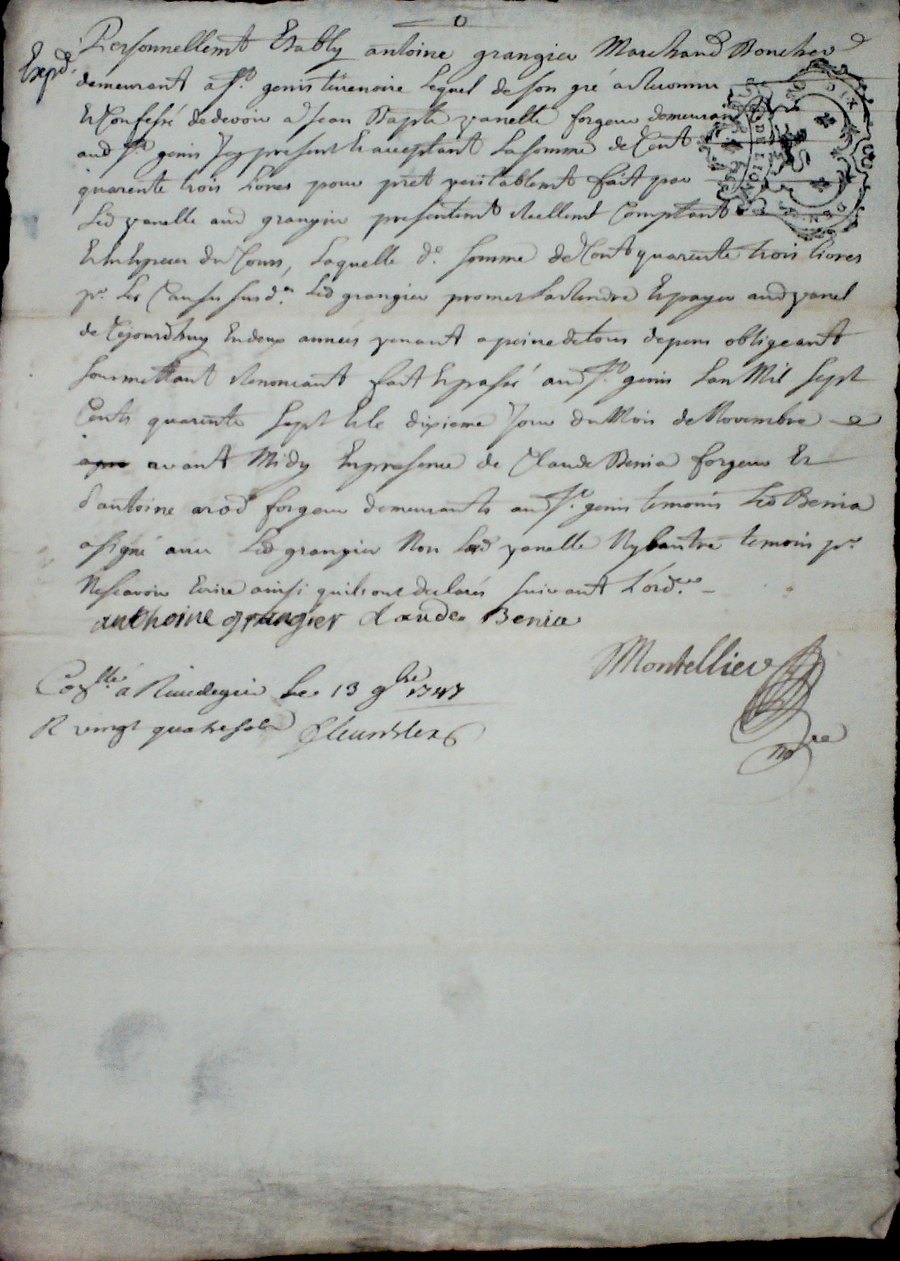 Expd.
Personnellemt Estably antoine grangier Marchand Boucher
demeurant a St. genis terrenoire Lequel de son gré a Reconnu
Et Confessé de devoir a Jean Baptte yvanelle forgeur demeurant
aud St. genis Icy present & acceptant La somme de Cent
quarente trois Livres pour prèt veritablemt fait par
Led yvanelle aud grangier presentemt Reellemt Comptant
Et En Especes du Cours, Laquelle de. somme de Cent quarente trois Livres
pr. Les Causes susd.es Led grangier promet La Rendre Et payer aud yvanel
de Cejourdhuy En deux années venant a peine de tous depens obligeant
soumettant Renoncant fait Et passé aud St. genis Lan Mil sept
Cents quarente sept Et le dixieme Jour du Mois de Novembre
apre avant Midy En presence de Claude Benia forgeur Et
d'antoine arod forgeur demeurants aud St. genis temoins Led Benia
a signé avec Led grangier Non Led yvanelle Ny Lautre temoin pr.
Ne scavoir Ecrire ainsi quils ont declaré suivant L'ord.ce
anthoine grangier Claude Benia
Montellier
nore
Collé a Rivedegier Le 13 9bre 1747
R vingt quatre sols
DIX
DE LION
DEN